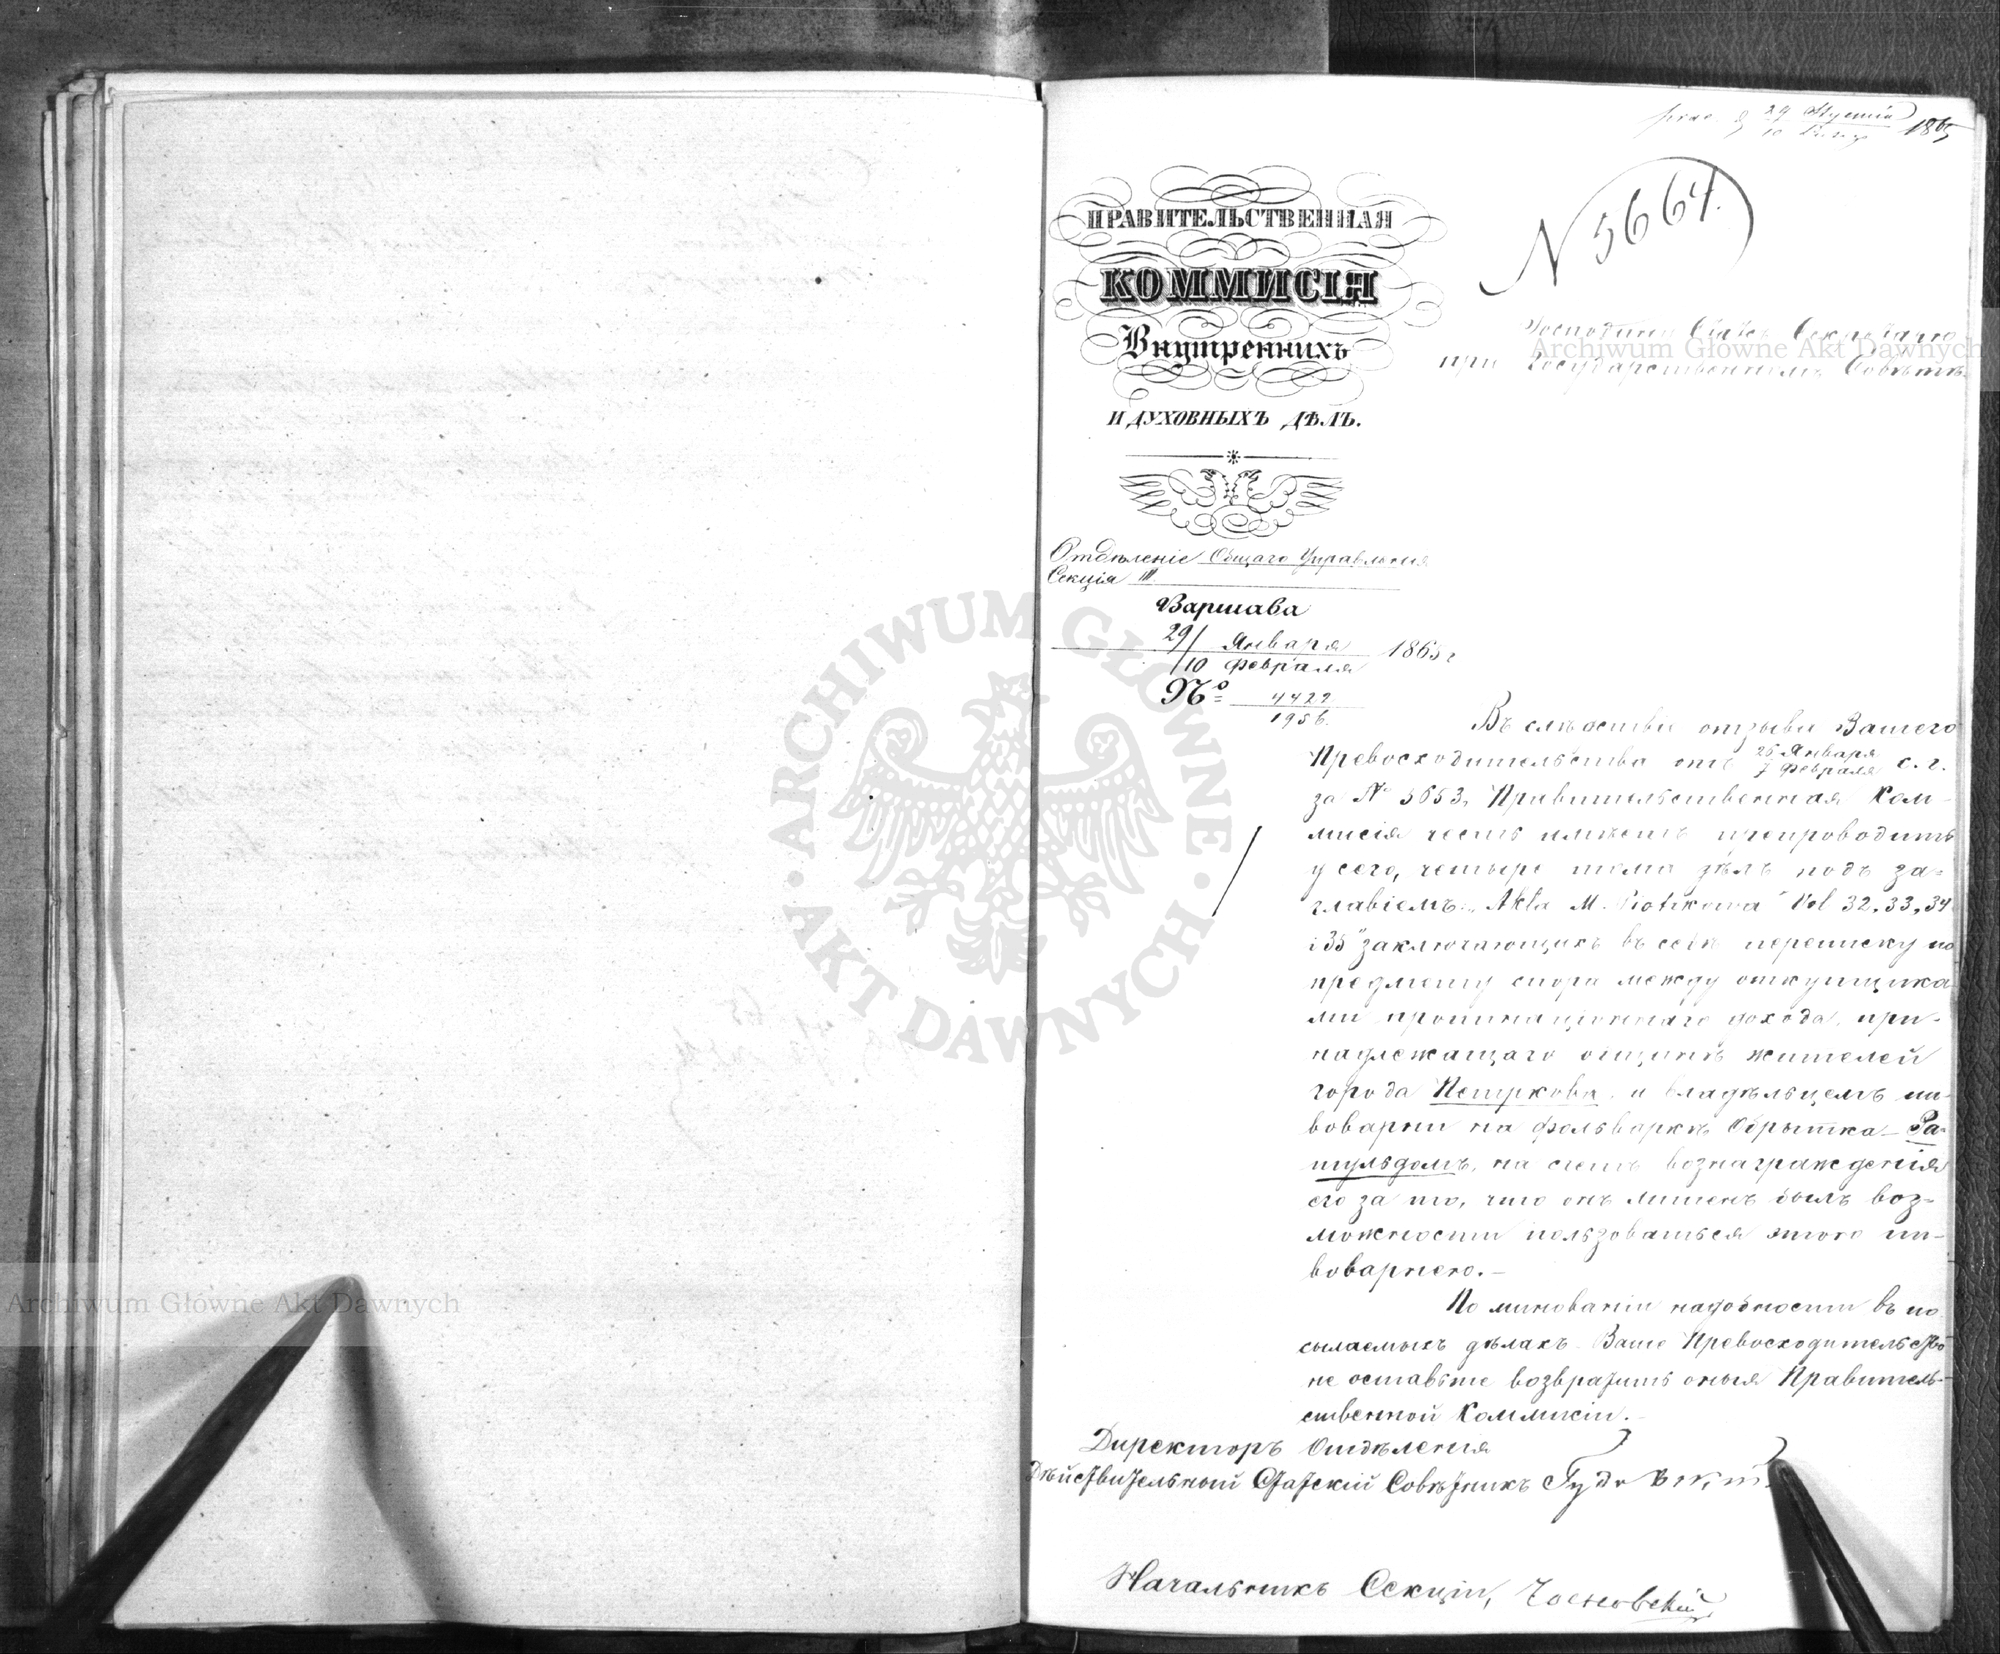 29 Stycznia
10 Lutego 1865
N 5664.
ПРАВИТЕЛЬСТВЕННАЯ
КОММИСІЯ
Внутреннихъ
И ДУХОВНЫХЪ ДѢЛЪ.
Господину Статсъ Секретарю
при Государственномъ Совѣтѣ.
Отдѣленіе Общаго Управленія
Секція III
Варшава
29/ Января
/10 Февраля 1865 г
№ 4422
1956.
Въ слѣдствіе отзыва Вашего
Превосходительства отъ 26 Января
7 Февраля с. г.
за № 5653, Правительственная Ком-
мисія честь имѣетъ препроводить
у сего, четыре тома дѣлъ подъ за-
главіемъ: „Akta M. Piotrkowa" Vol 32, 33, 34
i 35" заключающихъ въ себѣ переписку по
предмету спора между откупщика-
ми пропинаціоннаго дохода, при-
надлежащаго общинѣ жителей
города Петркова, и владѣльцемъ пи-
воварни на фольваркѣ Обрытка Ра-
пульдомъ, на счетъ вознагражденія
его за то, что онъ лишенъ былъ воз-
можности пользоваться этою пи-
воварнею.-
По минованіи надобности въ по
сылаемыхъ дѣлахъ Ваше Превосходительство
не оставьте возвратить оныя Правитель-
ственной Коммисіи.-
Директоръ Отдѣленія
Дѣйствительный Статскій Совѣтникъ
Начальникъ Секціи,
Archiwum Główne Akt Dawnych
ARCHIWUM GŁÓWNE · AKT DAWNYCH ·
Archiwum Główne Akt Dawnych